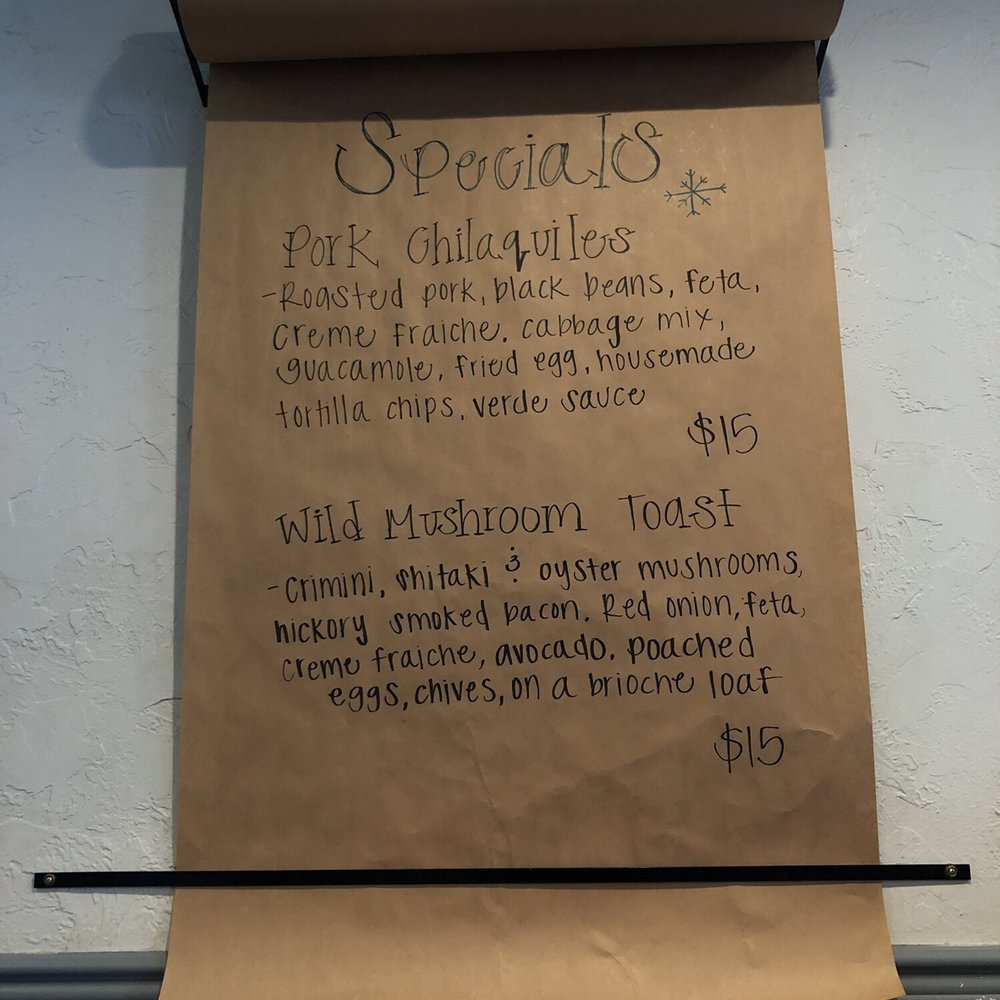 Specials
Pork Chilaquiles
-Roasted pork, black beans, feta,
creme fraiche. cabbage mix,
guacamole, fried egg, housemade
tortilla chips, verde sauce
$15
Wild Mushroom Toast
-crimini, shitaki & oyster mushrooms,
hickory smoked bacon. Red onion, feta,
creme fraiche, avocado. poached
eggs, chives, on a brioche loaf
$15